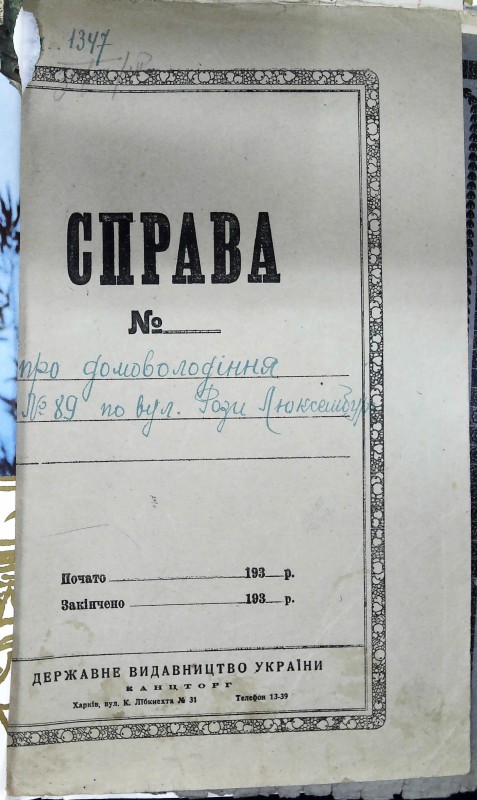 1347
СПРАВА
№
про домоволодіння
№ 89 по вул. Рози Люксембург
Почато 193 р.
Закінчено 193 р.
ДЕРЖАВНЕ ВИДАВНИЦТВО УКРАЇНИ
КАНЦТОРГ
Харків, вул. К. Лібкнехта № 31 Телефон 13-39